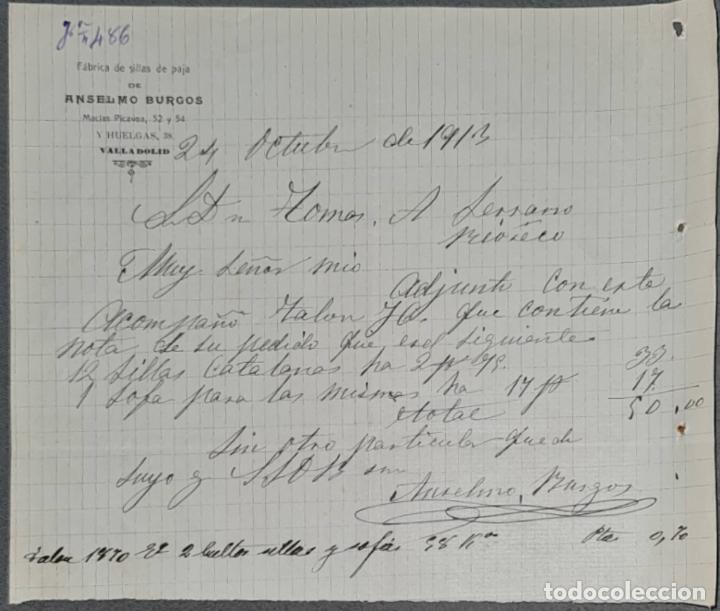 486
Fábrica de sillas de paja
DE
ANSELMO BURGOS
Macías Picavea, 52 y 54
Y HUELGAS, 38
VALLADOLID
24 Octubre de 1913
S. Dn Tomas. A Serrano
Rioseco
Muy Señor mio
Adjunto con este
Acompaño Talon que contiene la
nota de su pedido que es el siguiente
12 Sillas Catalanas ha 2 33.
1 Sofa para las mismas ha 17 p 17.
total 50,00
Sin otro particular queda
suyo
Anselmo Burgos
Talon 1870 2 bultos sillas y sofas 38 Ks Ptas 0,70
todocoleccion